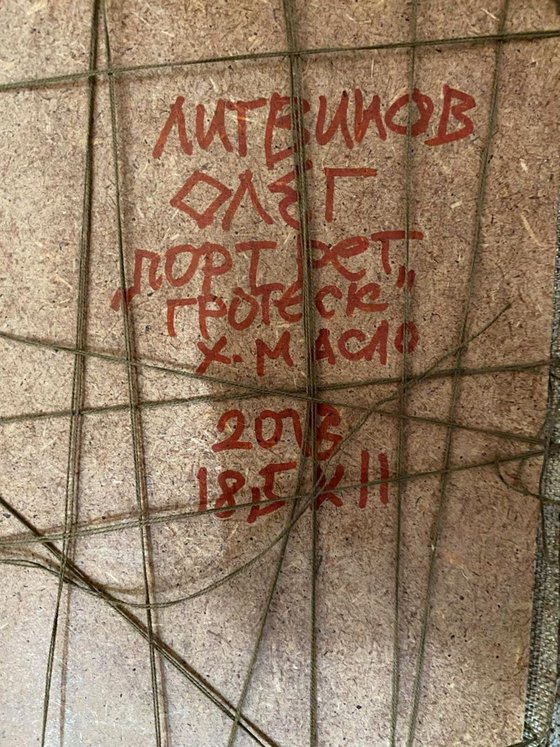 ЛИТВИНОВ
ОЛЕГ
„ПОРТРЕТ
ГРОТЕСК"
Х. МАСЛО
2013
18,5 X 11